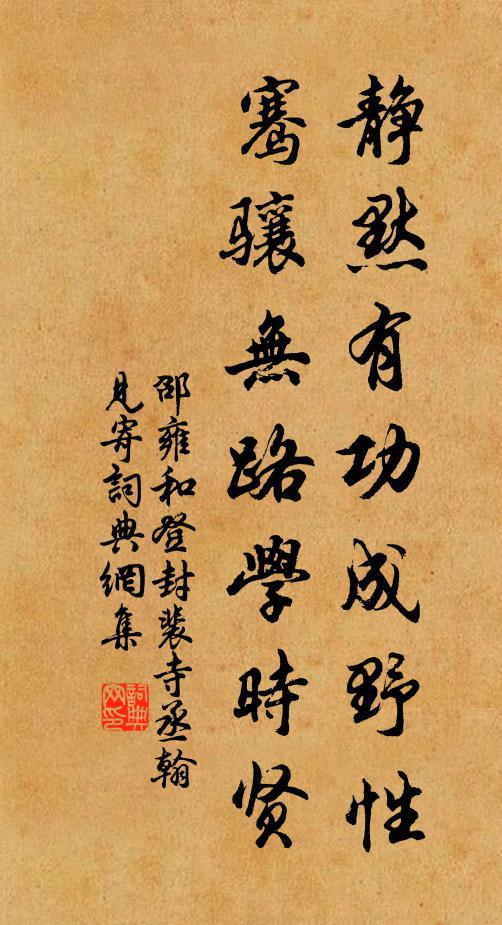 静默有功成野性
骞驤無路學時贤
邵雍和登封裴寺丞翰
見寄詞典網集
詞典网印